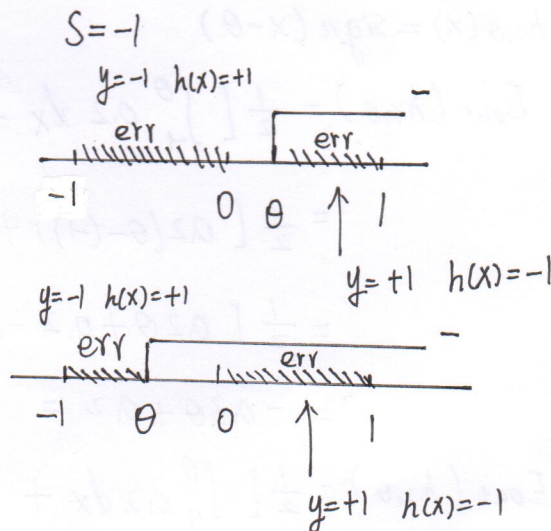 S = -1
y=-1 h(x)=+1
-
err err
-1 0 θ 1
y= +1 h(x)= -1
y=-1 h(x)=+1
-
err err
-1 θ 0 1
y=+1 h(x)= -1